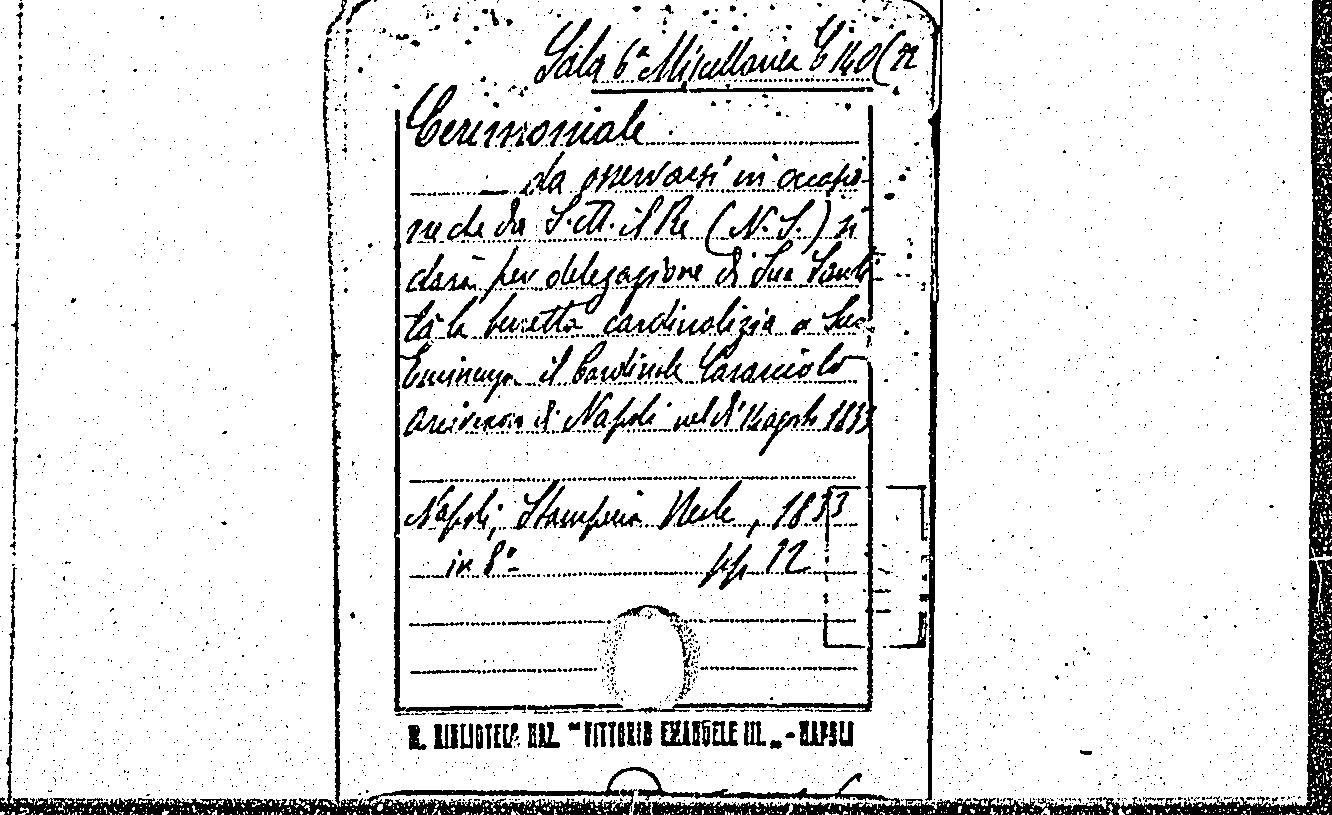 Sala 6ª Miscellanea C 140(22
Cerimoniale
— da osservarsi in occasio
ne che da S. M. il Re (N. S.) si
darà per delegazione di Sua Santi
tà la berretta cardinalizia a Sua
Eminenza il Cardinale Caracciolo
arcivescovo di Napoli nel dì 14 agosto 1833
Napoli, Stamperia Reale, 1833
in 8° pp 12
R. BIBLIOTECA NAZ. "VITTORIO EMANUELE III." - NAPOLI